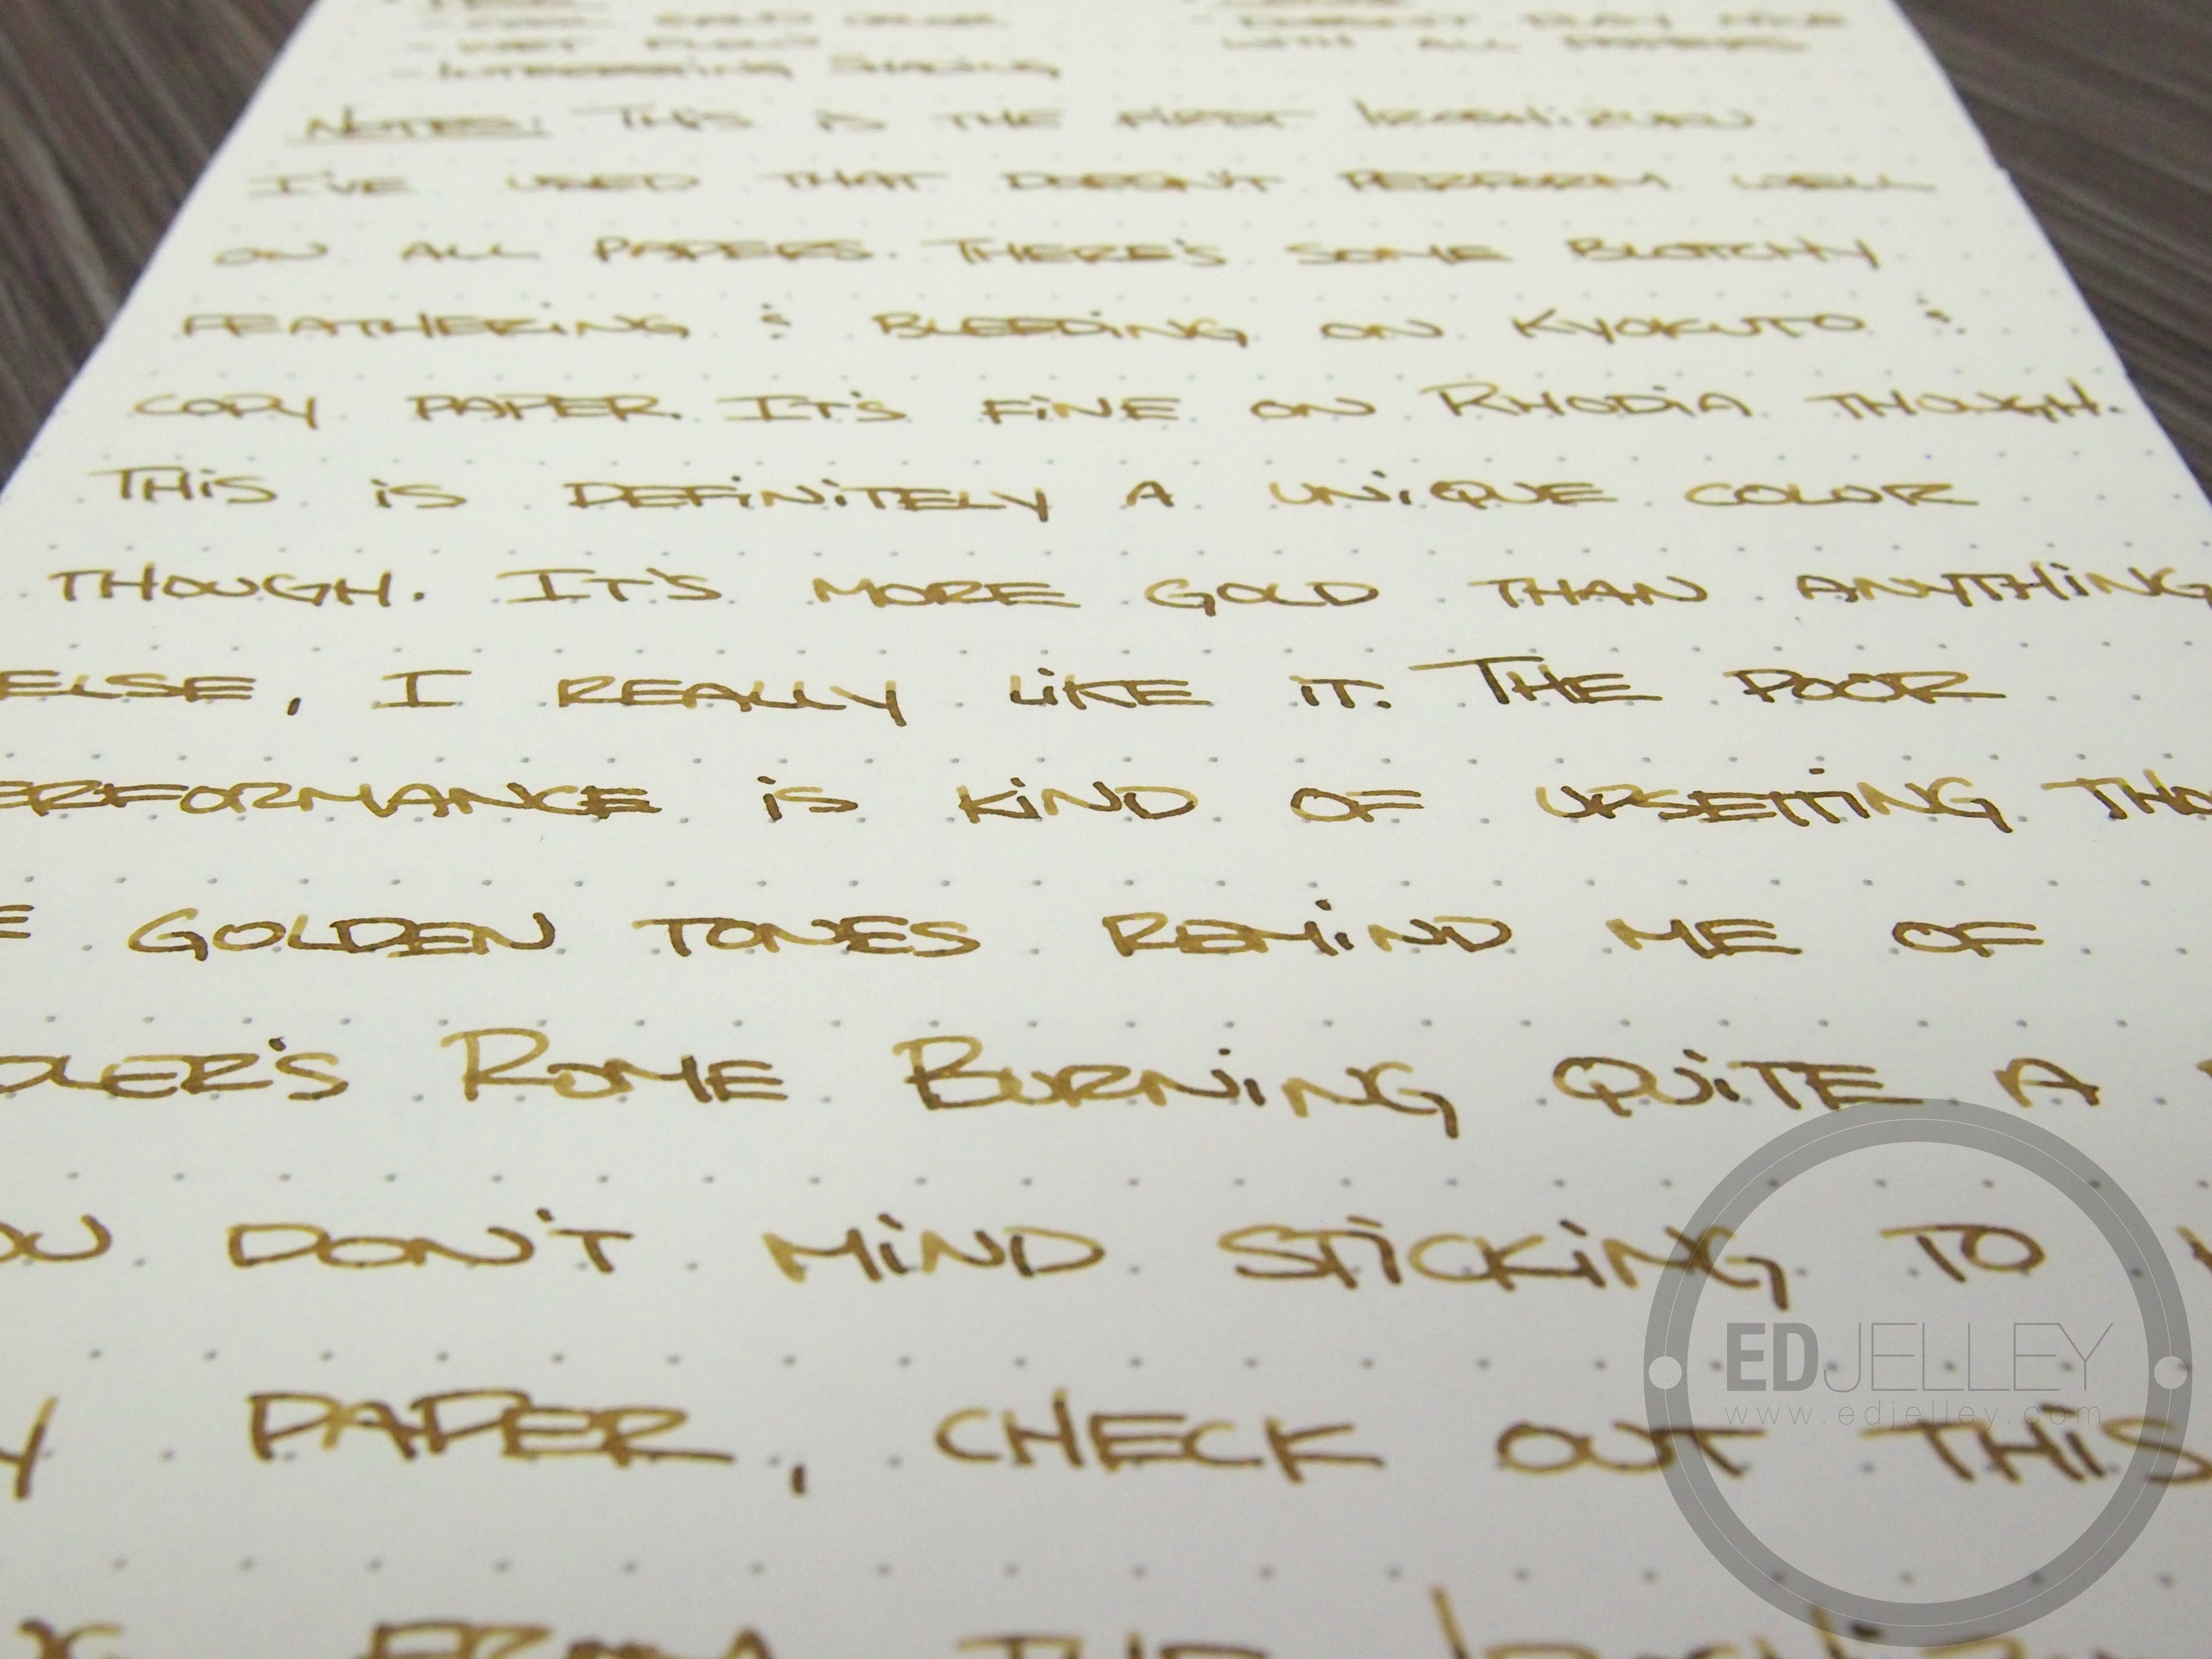 - WET FLOW
- INTERESTING SHADING
WITH ALL PAPERS
NOTES: THIS IS THE FIRST IROSHIZUKU
I'VE USED THAT DOESN'T PERFORM WELL
ON ALL PAPERS. THERE'S SOME BLOTCHY
FEATHERING & BLEEDING ON KYOKUTO &
COPY PAPER. IT'S FINE ON RHODIA THOUGH.
THIS IS DEFINITELY A UNIQUE COLOR
THOUGH. IT'S MORE GOLD THAN ANYTHING
ELSE, I REALLY LIKE IT. THE POOR
ERFORMANCE IS KIND OF UPSETTING THO
E GOLDEN TONES REMIND ME OF
DLER'S ROME BURNING QUITE A
OU DON'T MIND STICKING TO
Y PAPER, CHECK OUT THIS
FROM THE
EDJELLEY
www.edjelley.com